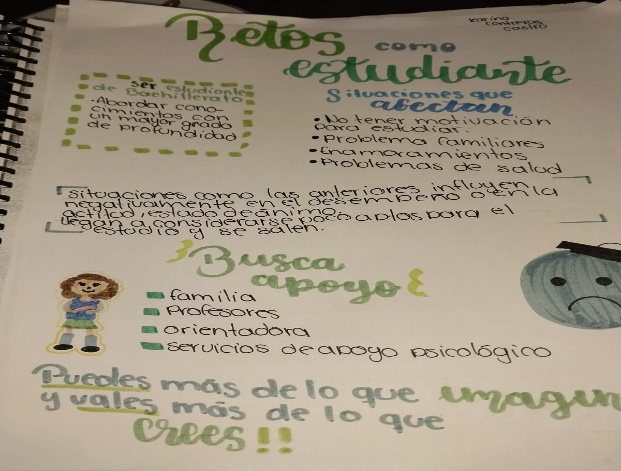 karina
contreras
castro
Retos como
estudiante
ser estudiante
de Bachillerato
•Abordar cono-
cimientos con
un mayor grado
de profundidad
Situaciones que
afectan
•No tener motivación
para estudiar.
•Problema familiares
•Enamoramientos
•Problemas de salud
situaciones como las anteriores influyen
negativamente en el desempeño o en la
actitud, estado de ánimo,
llegan a considerarse poco aptos para el
estudio y se salen.
Busca
apoyo
familia
Profesores
orientadora
servicios de apoyo psicológico
Puedes más de lo que imagin
y vales más de lo que
crees!!